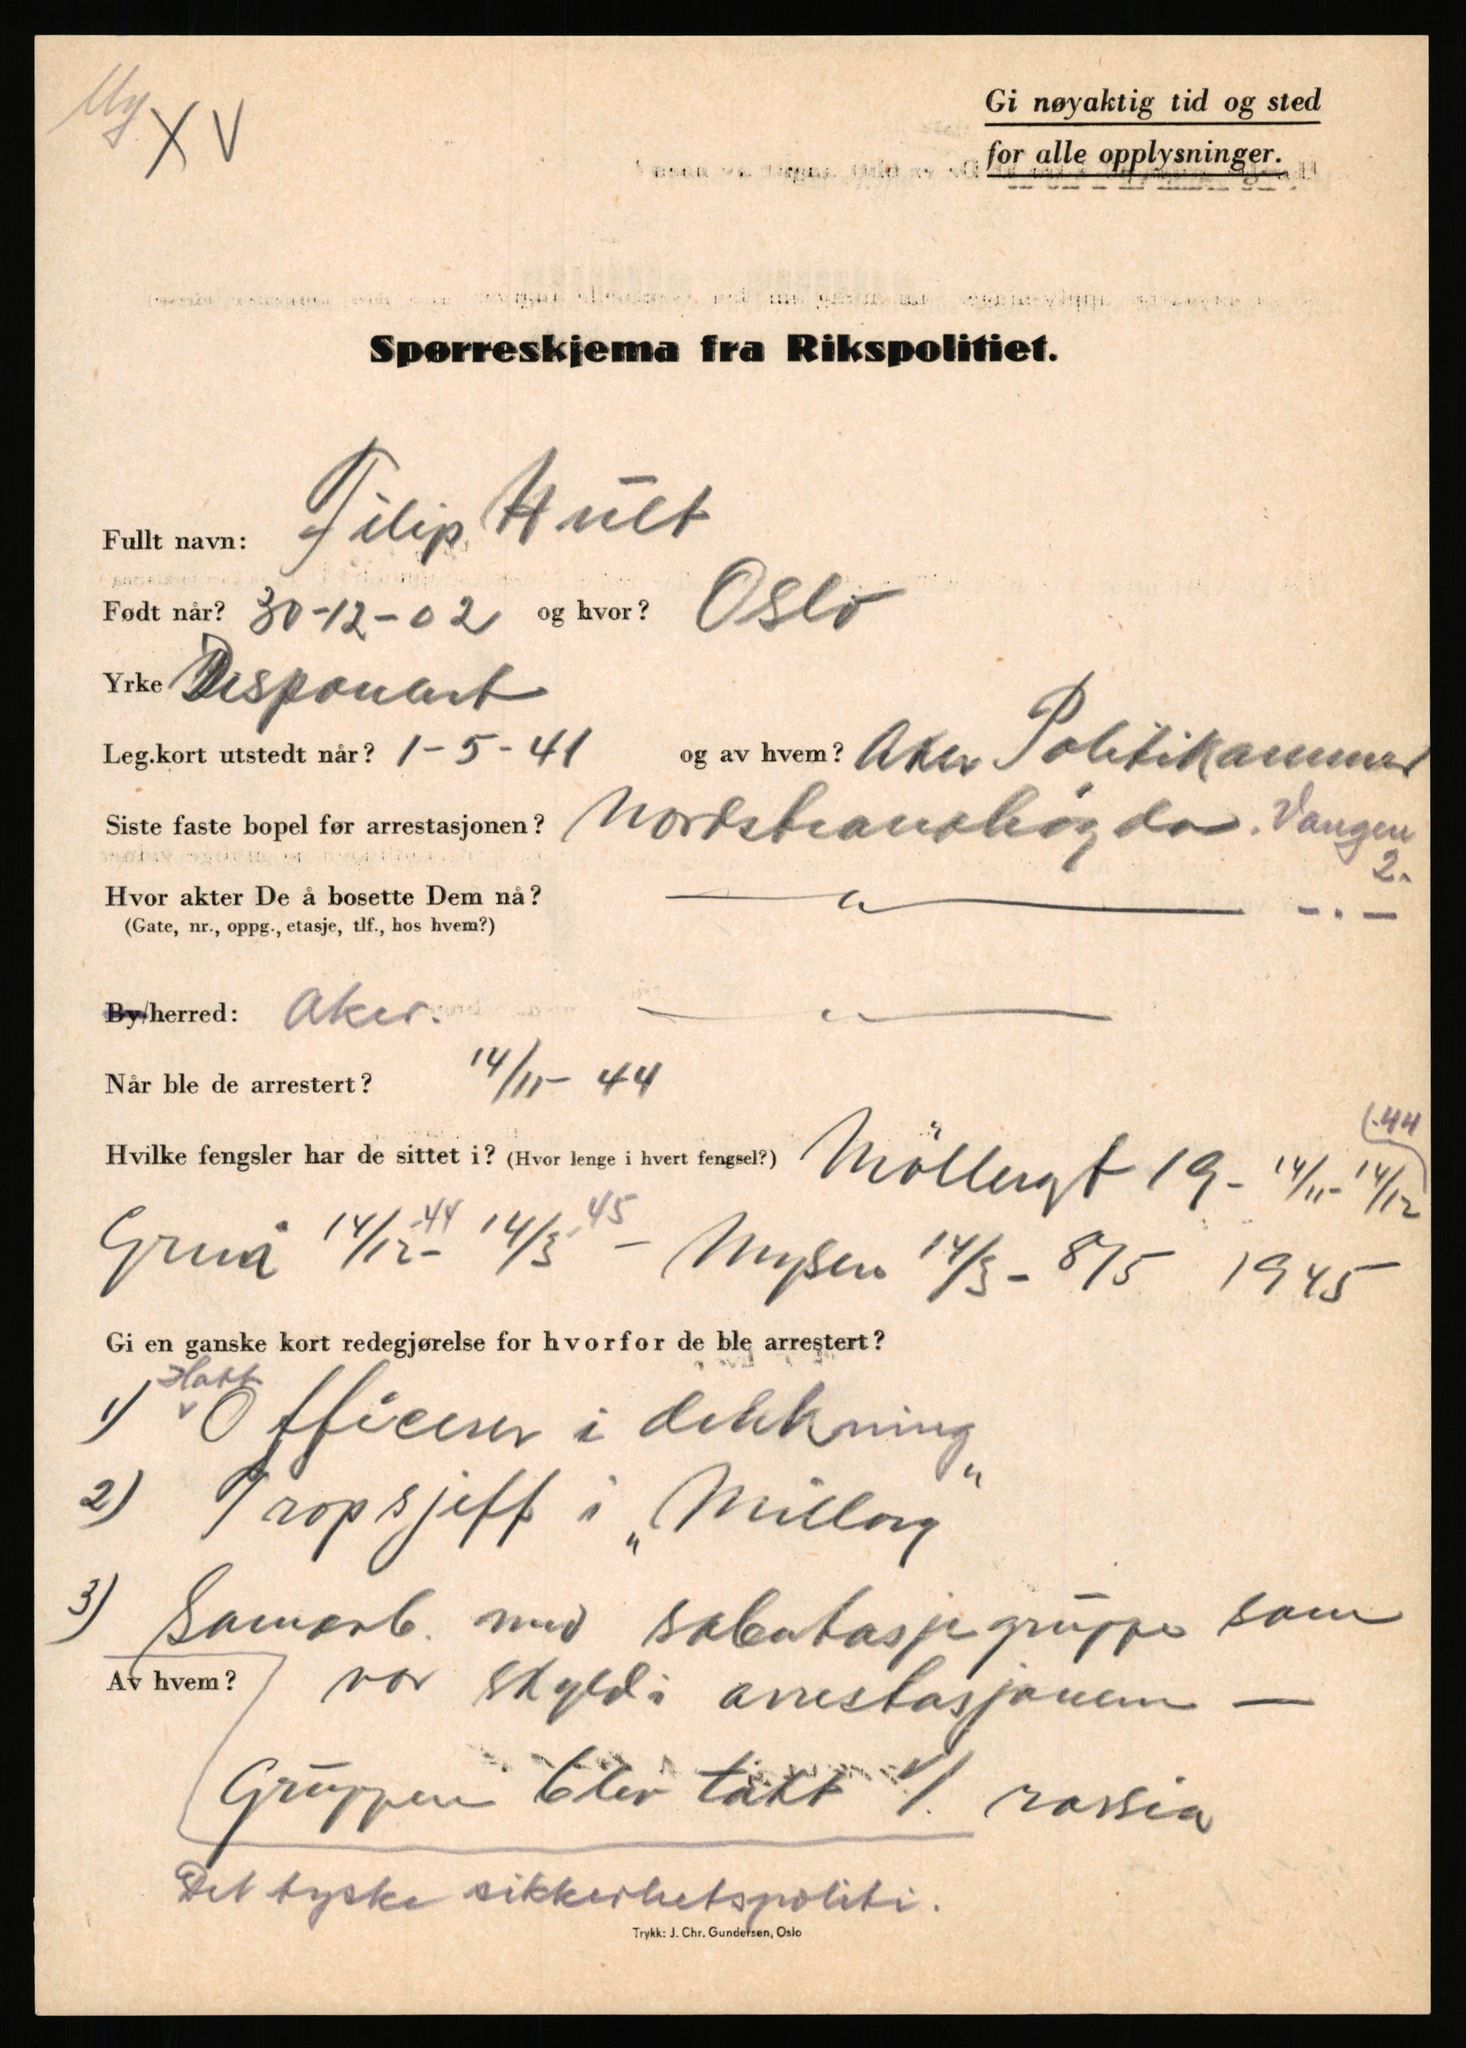 My
X V
Gi nøyaktig tid og sted
for alle opplysninger.
Spørreskjema fra Rikspolitiet.
Fullt navn: Filip Hult
Født når? 30-12-02 og hvor? Oslo
Yrke Disponent
Leg.kort utstedt når? 1-5-41 og av hvem? Aker Politikammer
Siste faste bopel før arrestasjonen? Nordstrandhögda. Vangen
2.
Hvor akter De å bosette Dem nå? — „ — - . -
(Gate, nr., oppg., etasje, tlf., hos hvem?)
By/herred: Aker. — „ —
Når ble de arrestert? 14/11- 44
Hvilke fengsler har de sittet i? (Hvor lenge i hvert fengsel?) Möllergt 19 - 14/11- 14/12 -44
Grini 14/12-44 - 14/3-45 - Mysen 14/3 - 8/5 1945
Gi en ganske kort redegjørelse for hvorfor de ble arrestert?
1) Hatt Officerer i dekkning
2) Tropsjeff i „Millorg"
3) Samarb. med sabotasjegruppe som
Av hvem? var skyld i arrestasjonen —
Gruppen blev tatt v/. rassia
Det tyske sikkerhetspoliti.
Trykk: J. Chr. Gundersen, Oslo